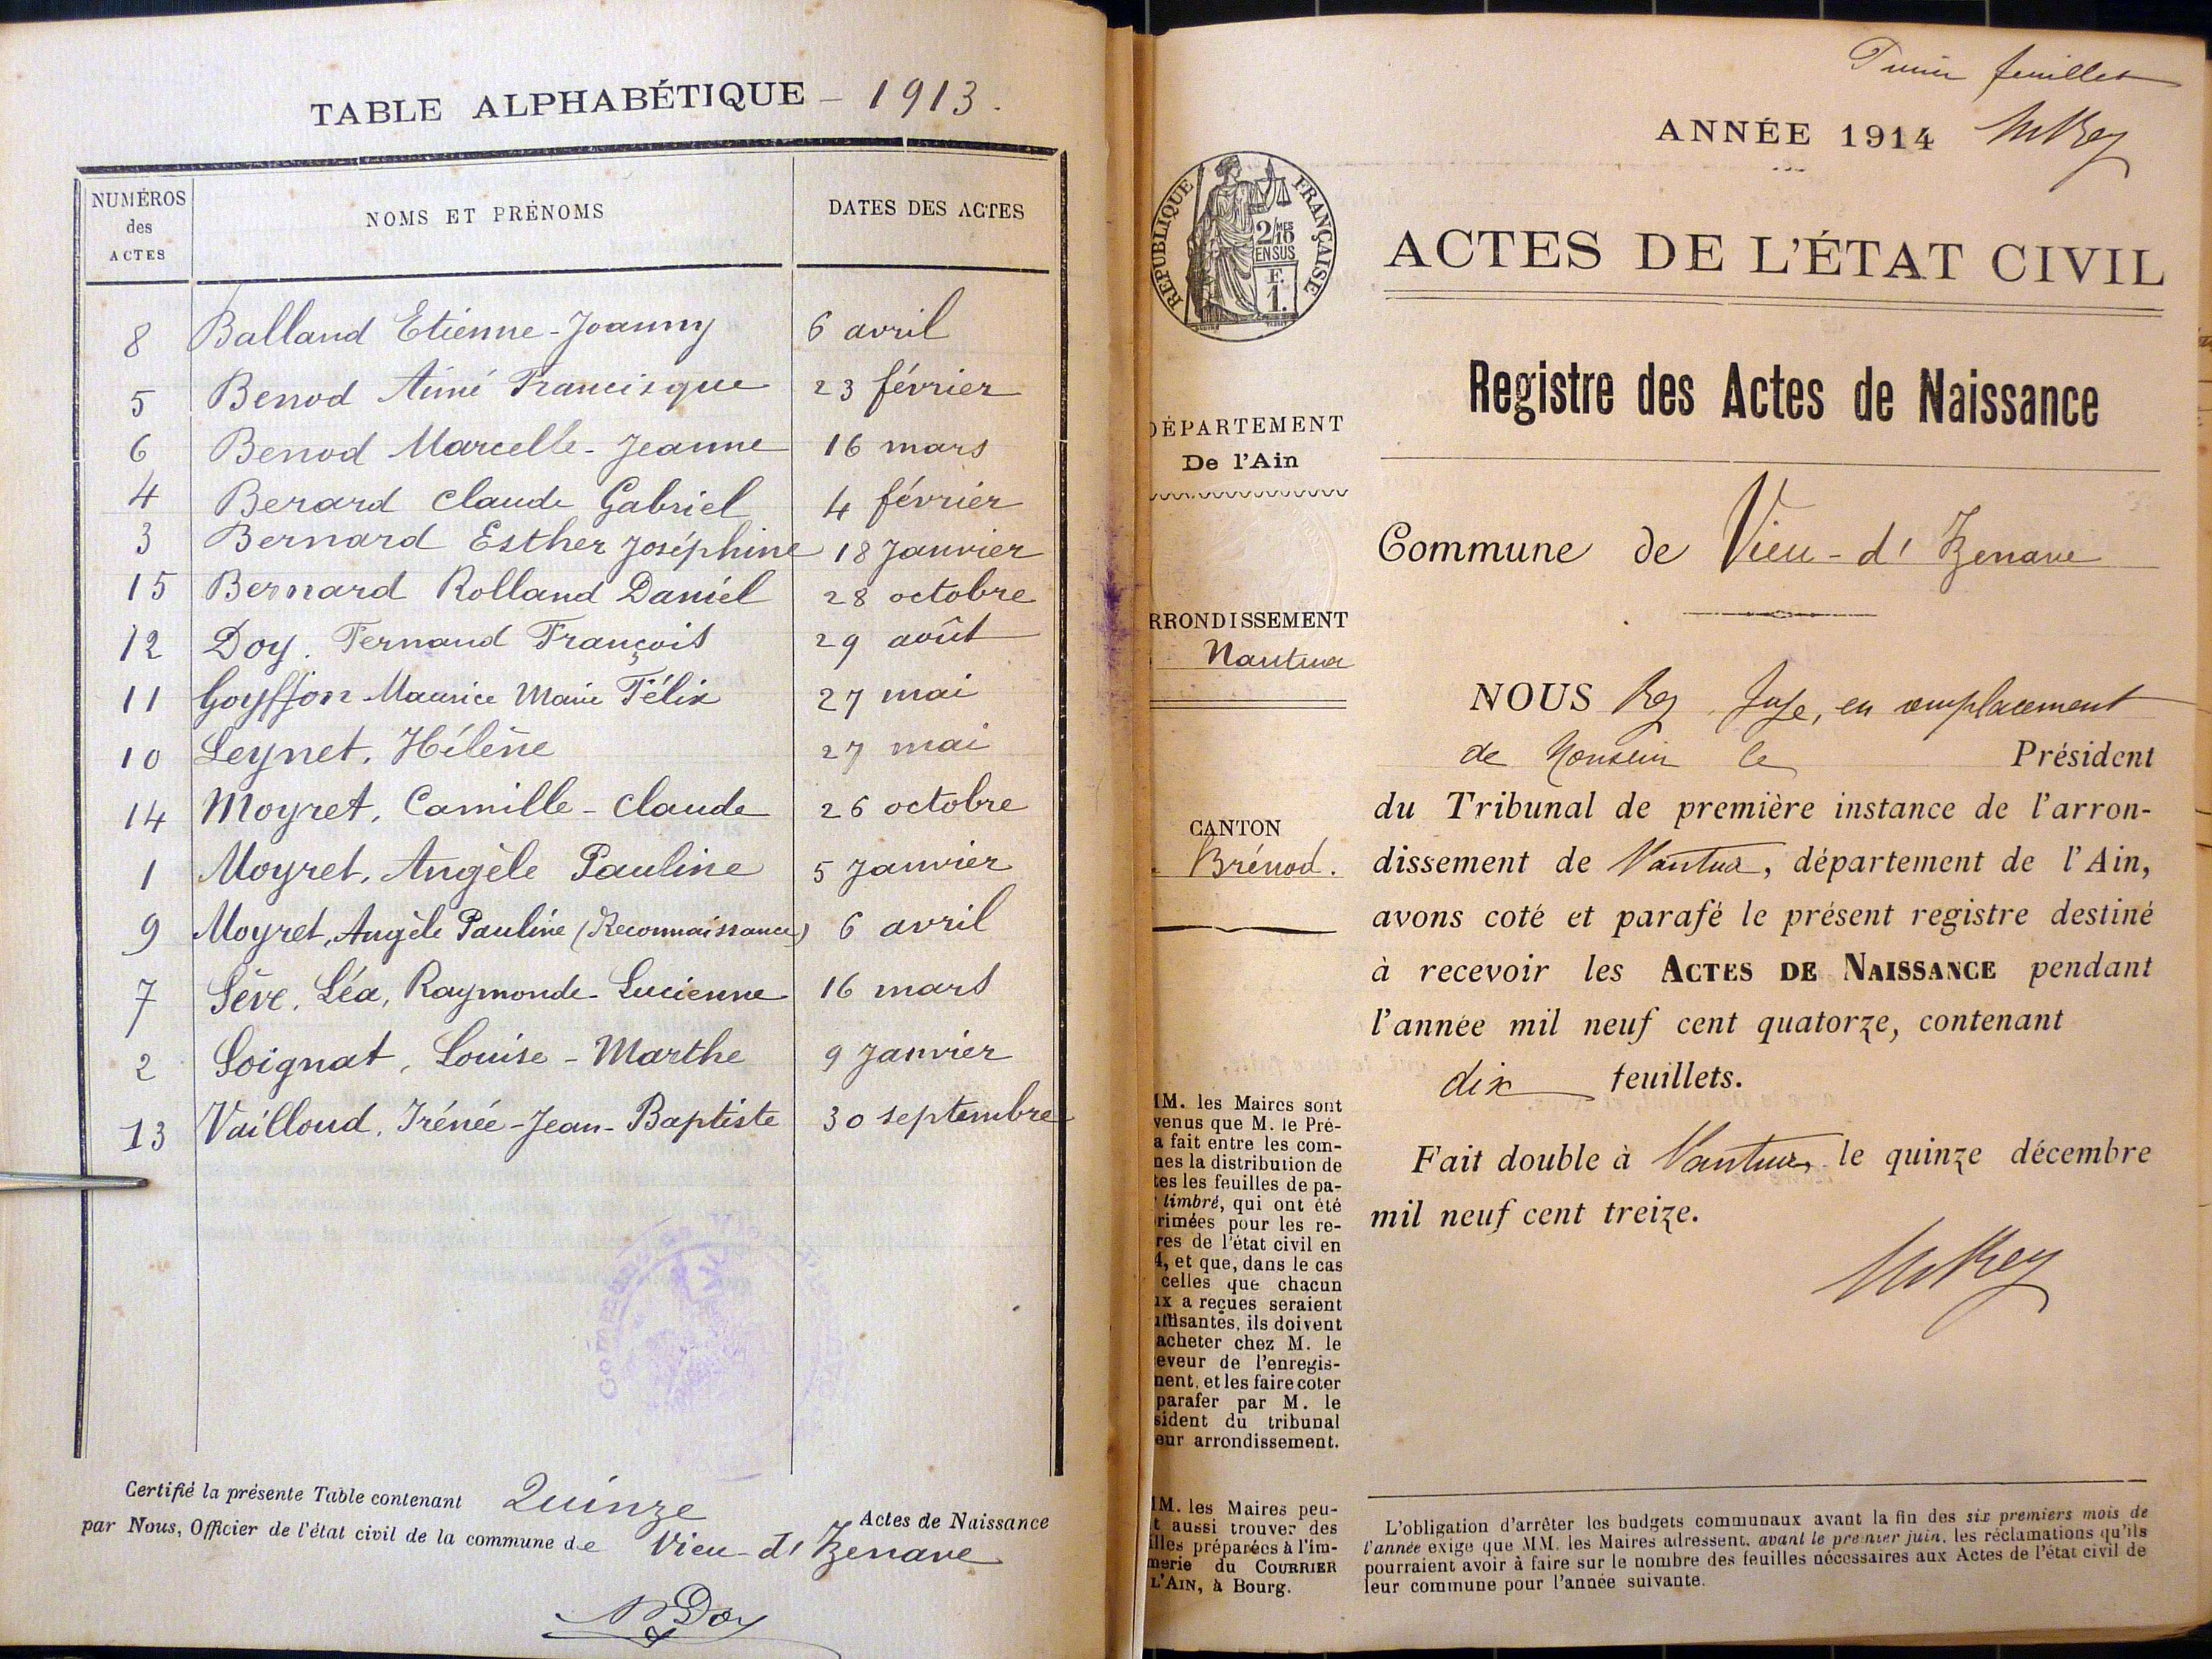 TABLE ALPHABÉTIQUE – 1913.
NUMÉROS des ACTES
NOMS ET PRÉNOMS
DATES DES ACTES
8 Balland Etienne-Joanny 6 avril
5 Benod Aimé Francisque 23 février
6 Benod Marcelle-Jeanne 16 mars
4 Berard Claude Gabriel 4 février
3 Bernard Esther Joséphine 18 Janvier
15 Bernard Rolland Daniel 28 octobre
12 Doy. Fernand François 29 août
11 Goyffon Maurice Marie Félix 27 mai
10 Leynet. Hélène 27 mai
14 Moyret, Camille-Claude 26 octobre
1 Moyret, Angèle Pauline 5 Janvier
9 Moyret, Angèle Pauline (Reconnaissance) 6 avril
7 Sève. Léa, Raymonde-Lucienne 16 mars
2 Soignat, Louise-Marthe 9 Janvier
13 Vailloud. Irénée-Jean-Baptiste 30 septembre
Certifié la présente Table contenant Quinze Actes de Naissance
par Nous, Officier de l'état civil de la commune de Vieu-d'Izenave
Doy
feuillet
ANNÉE 1914
Rey
RÉPUBLIQUE FRANÇAISE
2/MES
10
EN SUS
F.
1.
ACTES DE L'ÉTAT CIVIL
Registre des Actes de Naissance
DÉPARTEMENT
De l'Ain
Commune de Vieu-d'Izenave
RRONDISSEMENT
Nantua
CANTON
Brénod.
NOUS Rey Juge, en remplacement
de Monsieur le Président
du Tribunal de première instance de l'arron-
dissement de Nantua, département de l'Ain,
avons coté et parafé le présent registre destiné
à recevoir les ACTES DE NAISSANCE pendant
l'année mil neuf cent quatorze, contenant
dix feuillets.
Fait double à Nantua, le quinze décembre
mil neuf cent treize.
Rey
MM. les Maires sont
venus que M. le Pré-
a fait entre les com-
nes la distribution de
tes les feuilles de pa-
timbré, qui ont été
rimées pour les re-
res de l'état civil en
4, et que, dans le cas
celles que chacun
ux a reçues seraient
uffisantes, ils doivent
acheter chez M. le
eveur de l'enregis-
nent, et les faire coter
parafer par M. le
sident du tribunal
eur arrondissement.
MM. les Maires peu-
t aussi trouver des
illes préparées à l'im-
merie du COURRIER
L'AIN, à Bourg.
L'obligation d'arrêter les budgets communaux avant la fin des six premiers mois de
l'année exige que MM. les Maires adressent, avant le premier juin, les réclamations qu'ils
pourraient avoir à faire sur le nombre des feuilles nécessaires aux Actes de l'état civil de
leur commune pour l'année suivante.